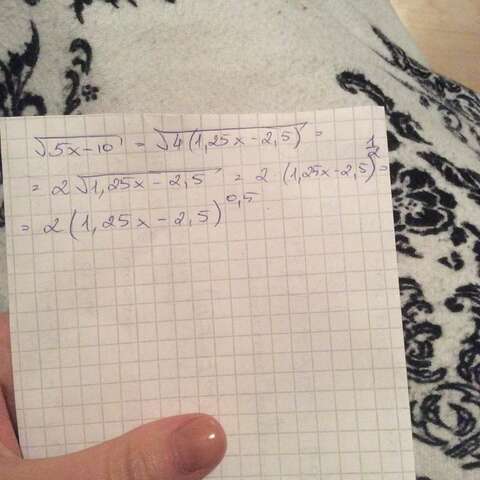 √5x-10 = √4(1,25x-2,5) =
= 2√1,25x-2,5 = 2 (1,25x-2,5)^1/2 =
= 2(1,25x-2,5)^0,5